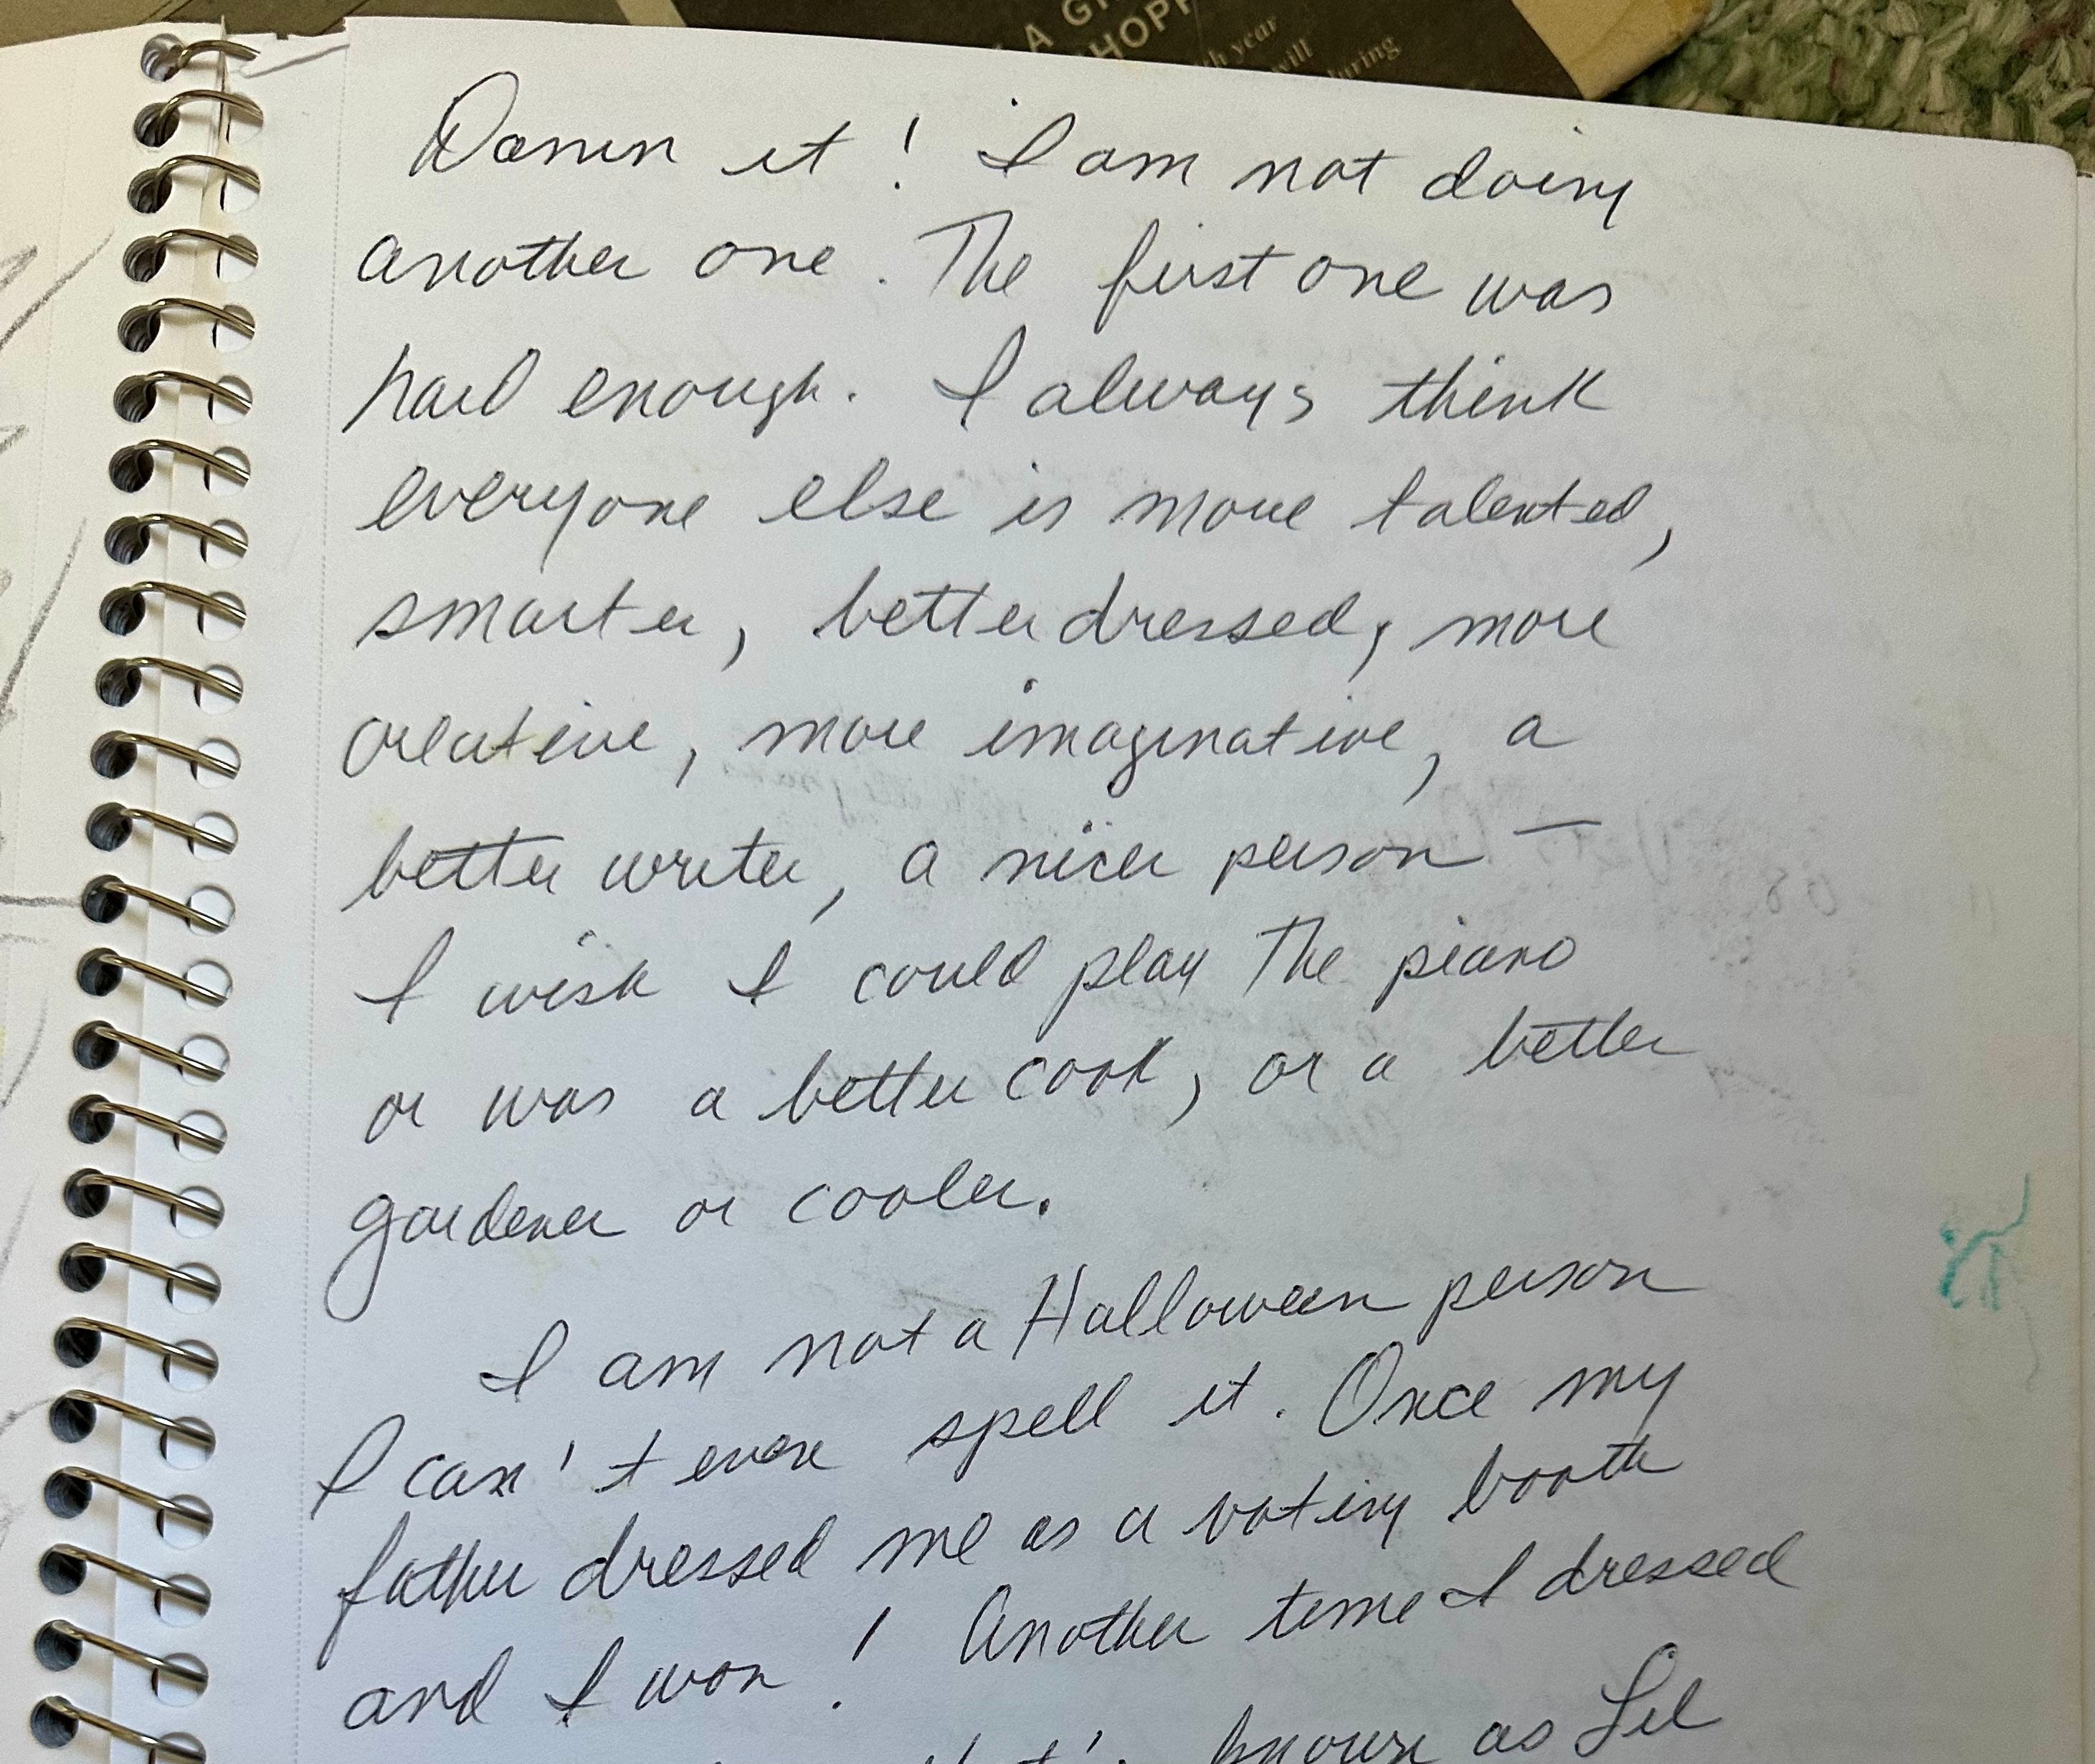 A G
HOPP
th year
will
during
Damn it! I am not doing
another one. The first one was
hard enough. I always think
everyone else is more talented,
smarter, better dressed, more
creative, more imaginative, a
better writer, a nicer person —
I wish I could play the piano
or was a better cook, or a better
gardener or cooler.
I am not a Halloween person
I can't even spell it. Once my
father dressed me as a voting booth
and I won! Another time I dressed
known as Lil